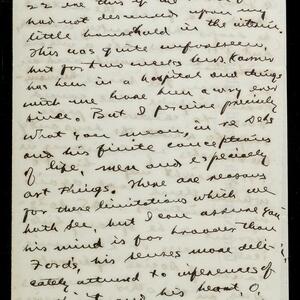 had not descended upon my
little household in the interim.
This was quite unforeseen,
but for two weeks Mrs. Kasner
has been in a hospital and things
with me have been awry ever
since. But I perceive precisely
what you mean, in re
and his finite conceptions
of life, men and especially
art things. There are reasons
for these limitations which we
both see, but I can assure you
his mind is far broader than
Ford's, his senses more deli-
cately attuned to influences of
and his heart, O,